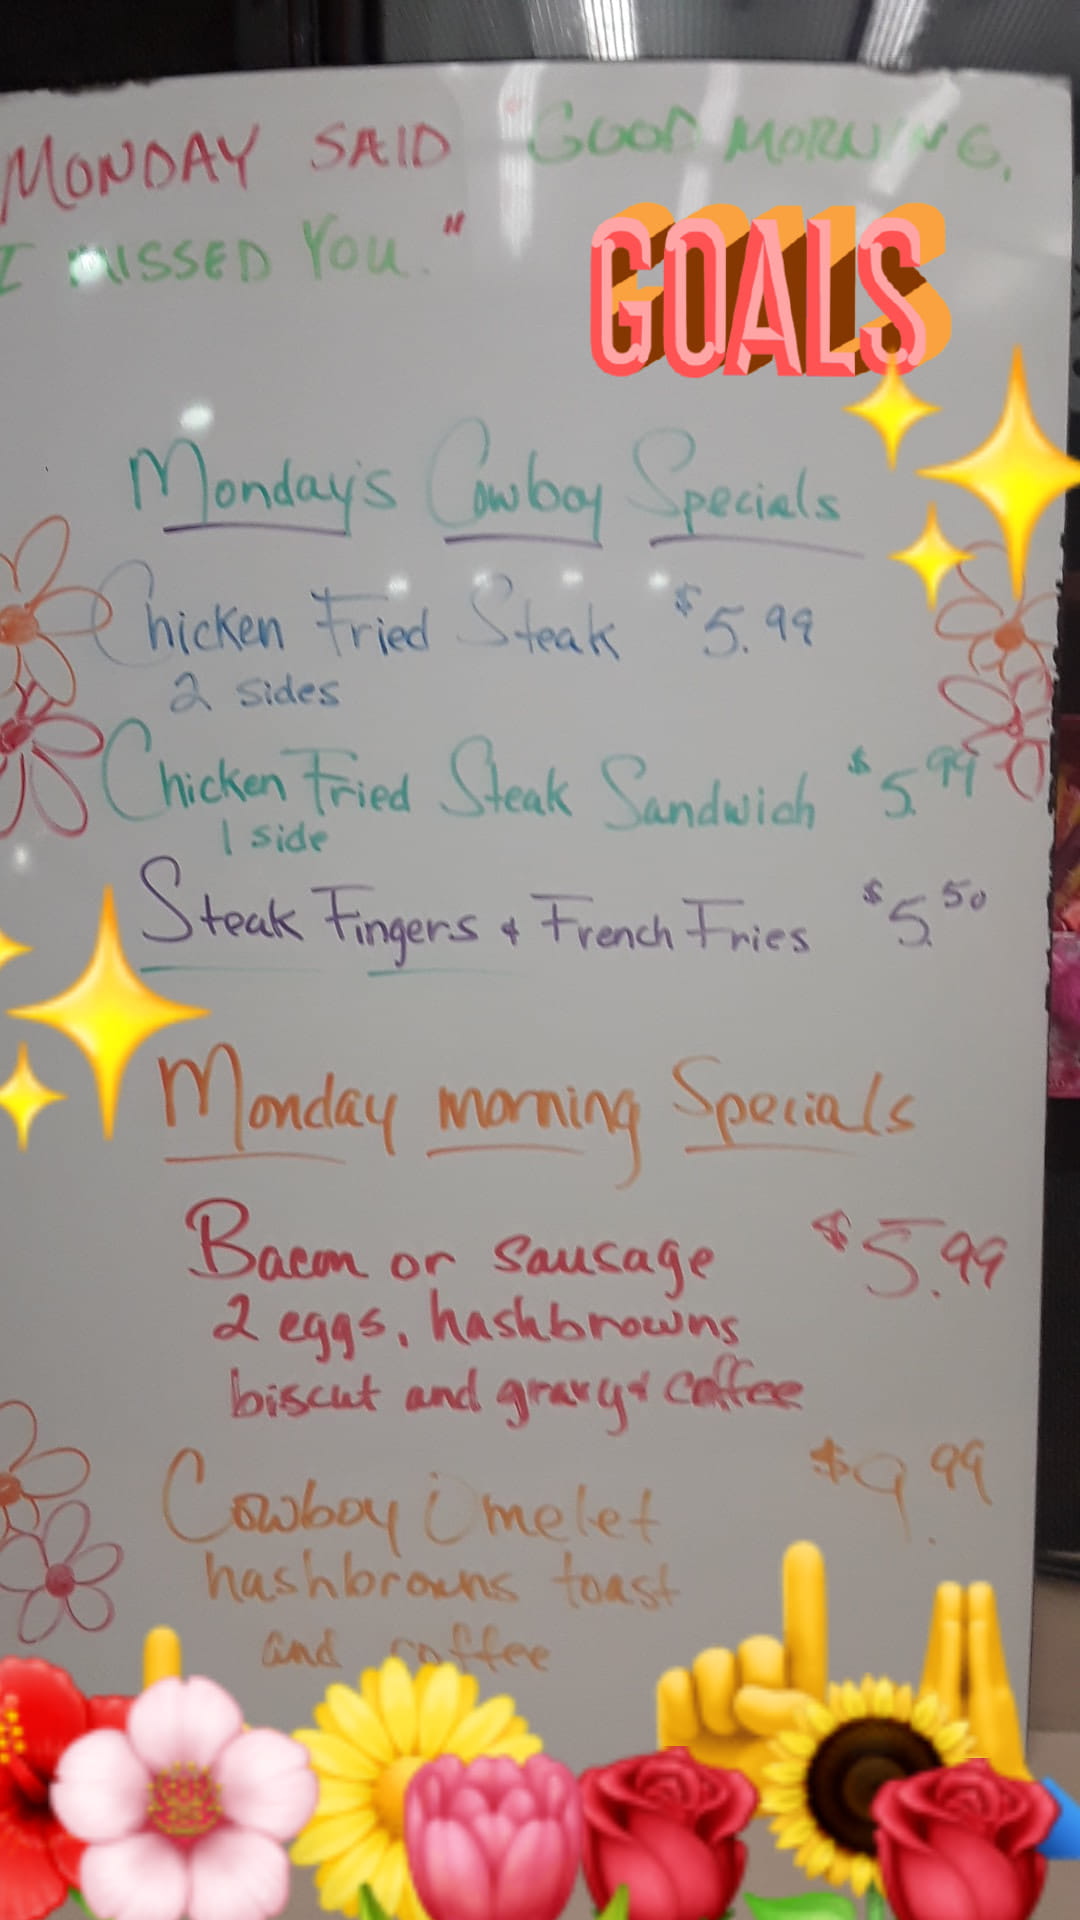 MONDAY SAID "GOOD MORNING,
I MISSED YOU."
GOALS
Monday's Cowboy Specials
Chicken Fried Steak $5.99
2 sides
Chicken Fried Steak Sandwich $5.99
1 side
Steak Fingers & French Fries $5.50
Monday morning Specials
Bacon or sausage $5.99
2 eggs, hashbrowns
biscut and gravy & coffee
Cowboy Omelet $9.99
hashbrowns toast
and coffee